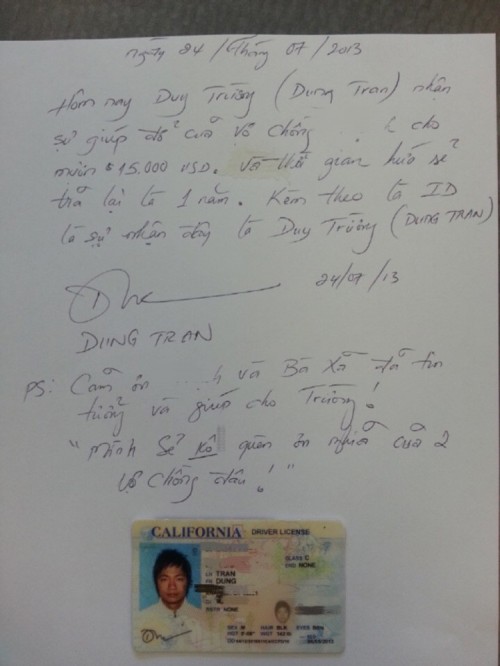 ngày 24 / tháng 07 / 2013
Hôm nay Duy Trường (Dung Tran) nhận
sự giúp đỡ của vợ chồng cho
mượn $15.000 USD. Và thời gian hứa sẽ
trả lại là 1 năm. Kèm theo là ID
là sự nhận đây là Duy Trường (DUNG TRAN)
24/07/13
DUNG TRAN
PS: Cảm ơn h và Bà Xã đã tin
tưởng và giúp cho Trường!
"Mình sẽ kô quên ơn nghĩa của 2
vợ chồng đâu!"
CALIFORNIA DRIVER LICENSE
CLASS C
END NONE
TRAN
DUNG
RSTR NONE